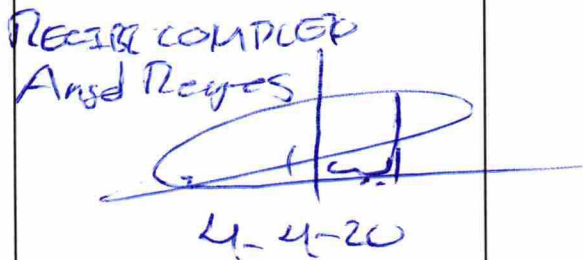 RECIBE COMPLETO
Angel Reyes
4-4-20